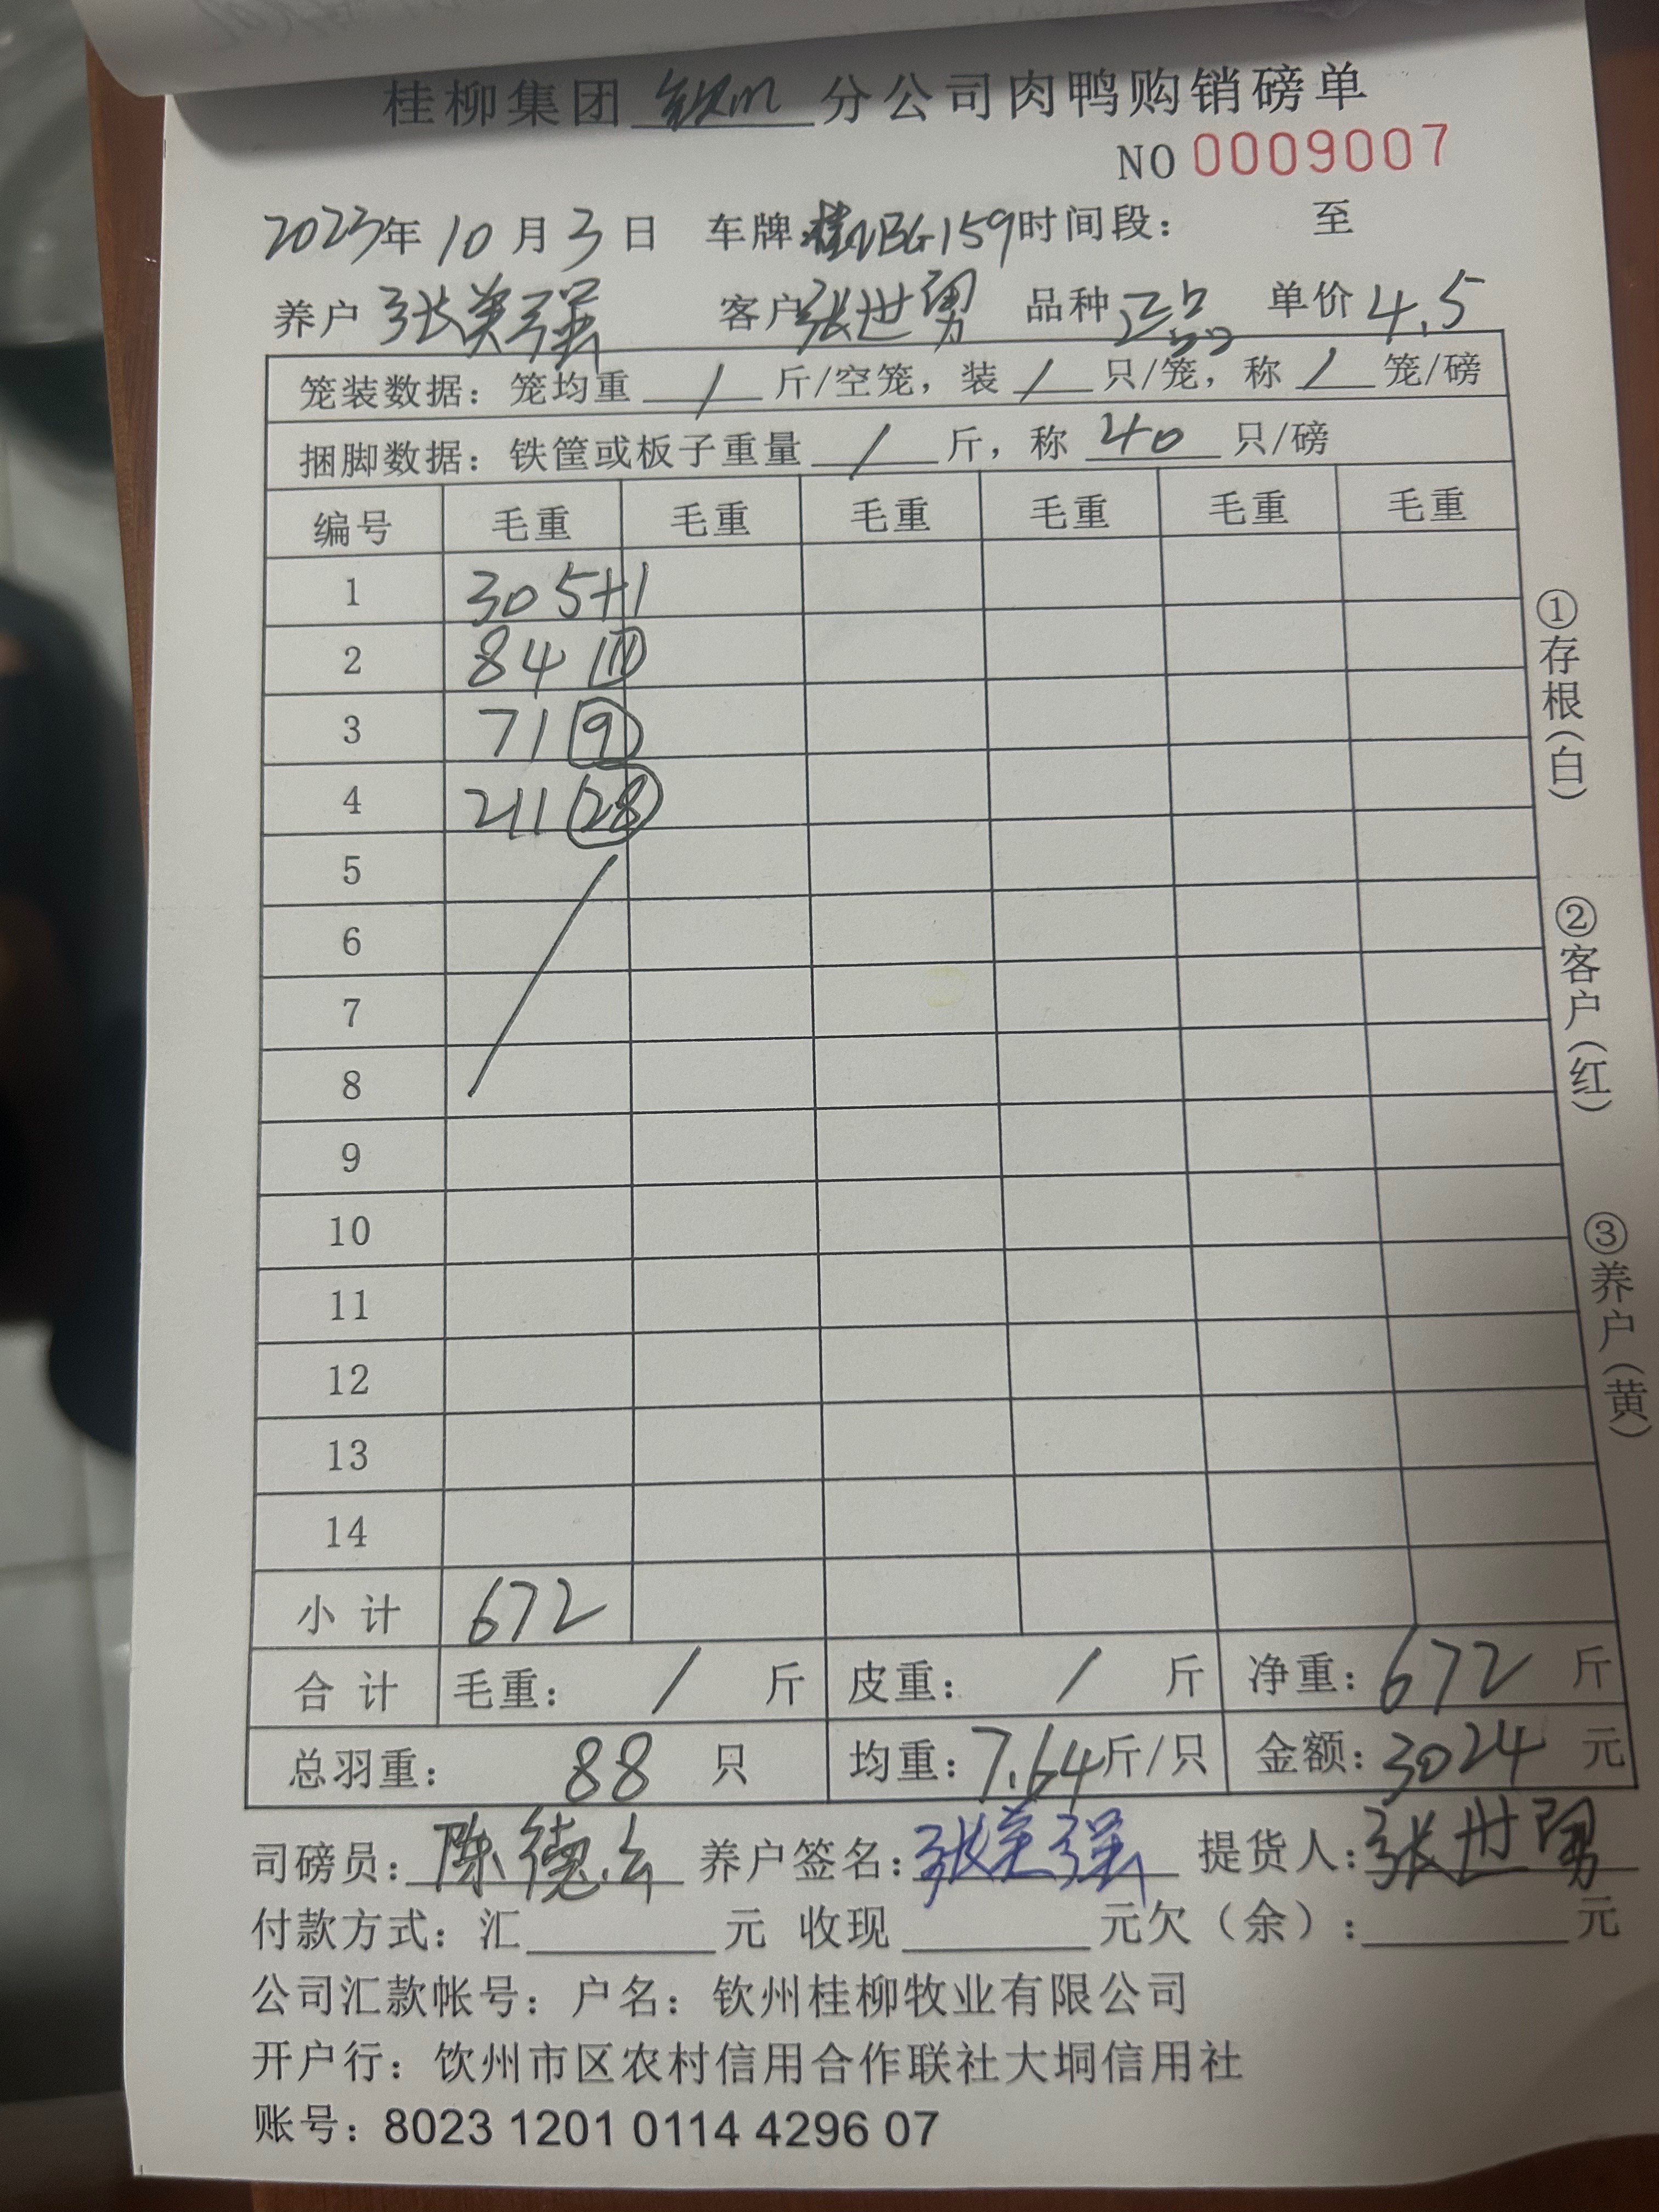 桂柳集团 钦州 分公司肉鸭购销磅单
NO 0009007
2023年 10 月 3 日 车牌 桂 159 时间段： 至
养户 张美强 客户 张世勇 品种 正品 单价 4.5
笼装数据：笼均重 / 斤/空笼，装 / 只/笼，称 / 笼/磅
捆脚数据：铁筐或板子重量 / 斤，称 40 只/磅
编号 毛重 毛重 毛重 毛重 毛重 毛重
1 305+1
2 84 ⑪
3 71 ⑨
4 211 ㉘
5
6
7
8
9
10
11
12
13
14
小 计 672
合 计 毛重： / 斤 皮重： / 斤 净重：672 斤
总羽重： 88 只 均重：7.64斤/只 金额：3024 元
司磅员：陈德 养户签名：张美强 提货人：张世勇
付款方式：汇 元 收现 元欠（余）： 元
公司汇款帐号：户名：钦州桂柳牧业有限公司
开户行：饮州市区农村信用合作联社大垌信用社
账号：8023 1201 0114 4296 07
①存根（白）
②客户（红）
③养户（黄）